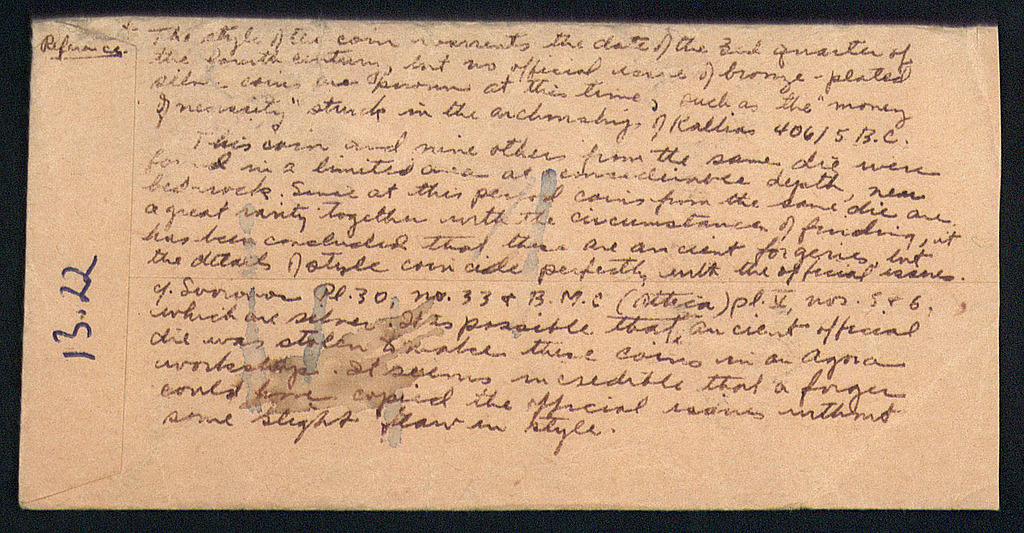 Reference.
The style of the coin warrants the date of the 3rd quarter of
the fourth century, but no official issue of bronze-plated
silver coins are known at this time, such as the "money
of necessity" struck in the archonship of Kallias 406/5 B.C.
This coin and nine others from the same die were
found in a limited area at considerable depth, near
bedrock. Since at this period coins from the same die are
a great rarity together with the circumstances of finding, it
has been concluded that these are ancient forgeries, but
the details of style coincide perfectly with the official issues.
cf. Svoronos Pl. 30, no. 33 & B.M.C (Attica) pl. V, nos. 5 & 6.
which are silver. It is possible that an ancient official
die was stolen to make these coins in an Agora
workshop. It seems incredible that a forger
could have copied the official issues without
some slight flaw in style.
13.22